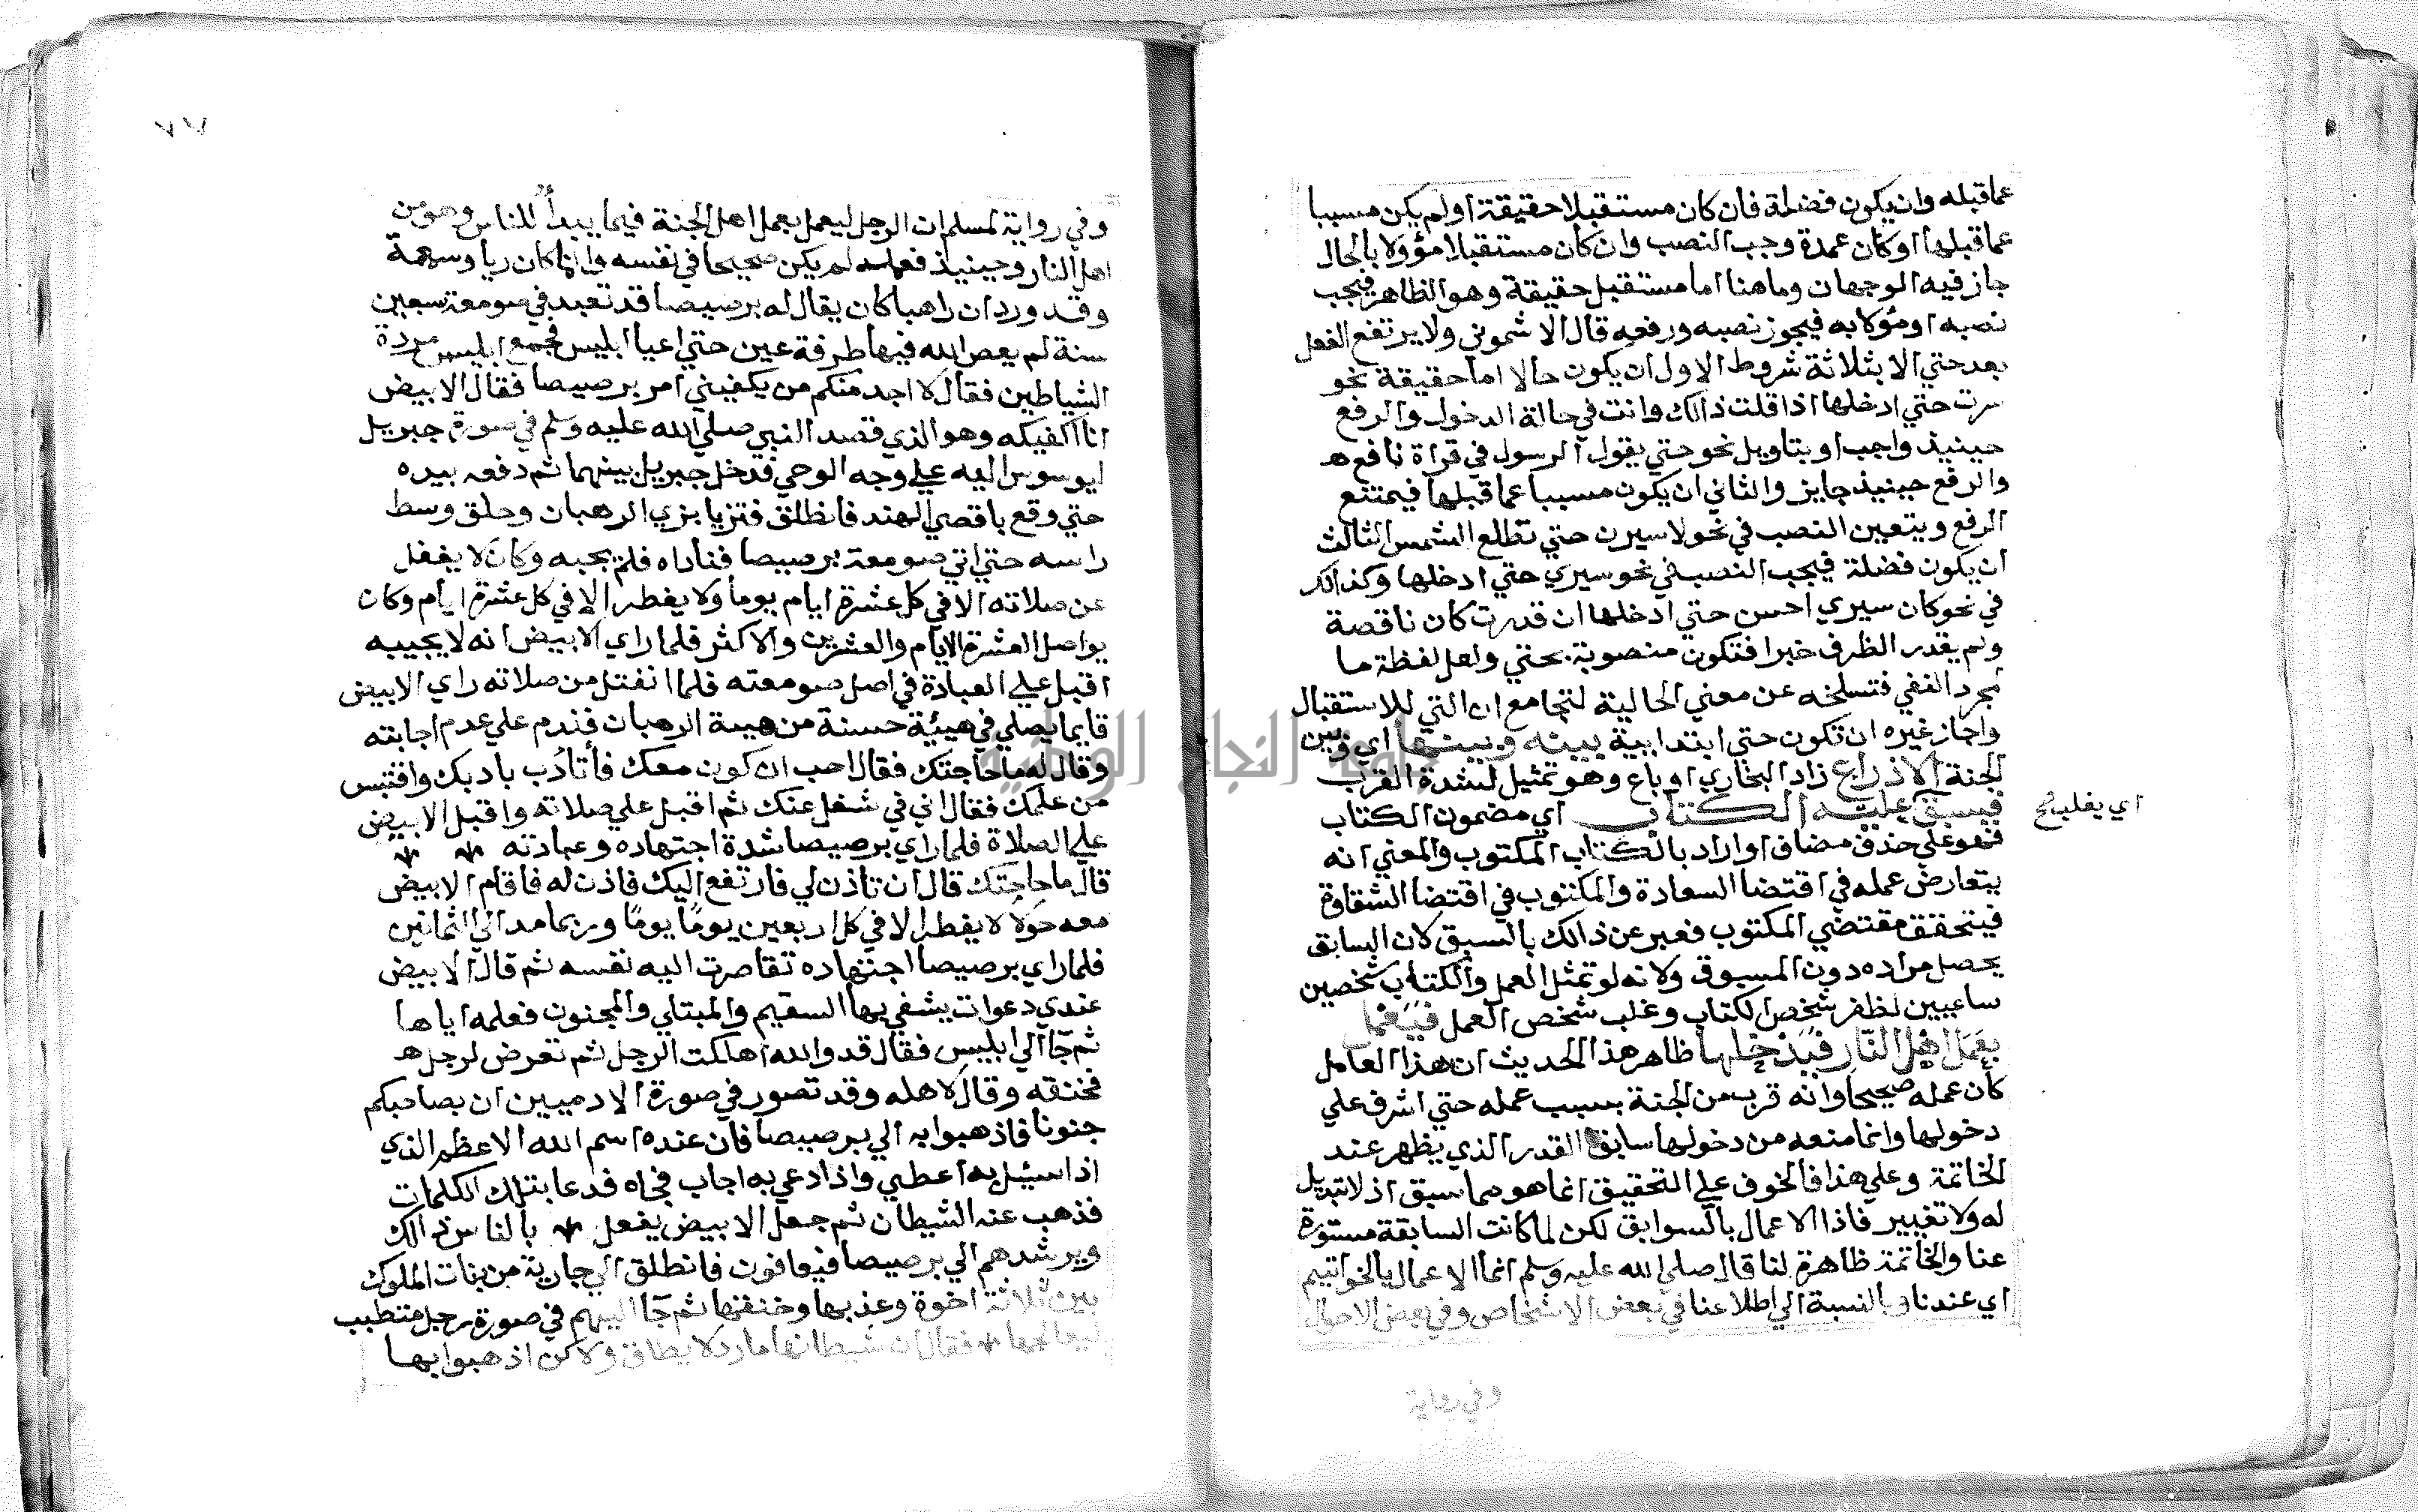 عما قبله وان يكون فضلة فان كان مستقبلا حقيقة اولم يكن مسببا
عما قبلها او كان عمدة وجب النصب وان كان مستقبلا مؤولا بالحال
جاز فيه الوجهان وما هنا اما مستقبل حقيقة وهو الظاهر فيجب
نصبه او مؤلا به فيجوز نصبه ورفعه قال الاشموني ولا يرتفع الفعل
بعد حتي الا بثلاثة شروط الاول ان يكون حالا اما حقيقة نحو
سرت حتي ادخلها اذا قلت ذالك وانت في حالة الدخول والرفع
حينيذ واجب او بتاويل نحو حتي يقول الرسول في قراة نافع هـ
والرفع حينيذ جايز والثاني ان يكون مسببا عما قبلها فيمتنع
الرفع ويتعين النصب في نحو لاسيرن حتي تطلع الشمس الثالث
ان يكون فضلة فيجب النصب في نحو سيري حتي ادخلها وكذالك
في نحو كان سيري احسن حتي ادخلها ان قدرت كان ناقصة
ولم يقدر الظرف خبرا فتكون منصوبة بحتي ولعل لفظة ما
لمجرد النفي فتسلخه عن معني الحالية لتجامع ان التي للاستقبال
واجاز غيره ان تكون حتي ابتدايية بينه وبينها اي وبين
الجنة الا ذراع زاد البخاري او باع وهو تمثيل لشدة القرب
فيسبق عليه الكتاب اي مضمون الكتاب
اي يغلب صح
فهو علي حذف مضاف او اراد بالكتاب المكتوب والمعني انه
يتعارض عمله في اقتضا السعادة والمكتوب في اقتضا الشقاوة
فيتحقق مقتضي المكتوب فعبر عن ذالك بالسبق لان السابق
يحصل مراده دون المسبوق ولانه لو تمثل العمل والكتاب شخصين
ساعيين لظفر شخص الكتاب وغلب شخص العمل فيعمل
بعمل اهل النار فيدخلها ظاهر هذا الحديث ان هذا العامل
كان عمله صحيحا وانه قرب من الجنة بسبب عمله حتي اشرف علي
دخولها وانما منعه من دخولها سابق القدر الذي يظهر عند
الخاتمة وعلي هذا فالخوف علي التحقيق انما هو مما سبق اذ لا تبديل
له ولا تغيير فاذا الاعمال بالسوابق لكن لما كانت السابقة مستورة
عنا والخاتمة ظاهرة لنا قال صلي الله عليه وسلم انما الاعمال بالخواتيم
اي عندنا وبالنسبة الي اطلاعنا في بعض الاشخاص وفي بعض الاحوال
وفي رواية
وفي رواية لمسلم ان الرجل ليعمل بعمل اهل الجنة فيما يبدأ للناس وهو من
اهل النار وحينيذ فعمله لم يكن صحيحا في نفسه وانما كان ريا وسمعة
وقد ورد ان راهبا كان يقال له برصيصا قد تعبد في صومعة سبعين
سنة لم يعص الله فيها طرفة عين حتي اعيا ابليس فجمع ابليس مردة
الشياطين فقال لا اجد منكم من يكفيني امر برصيصا فقال الابيض
انا اكفيكه وهو الذي قصد النبي صلي الله عليه وسلم في صورة جبريل
ليوسوس اليه علي وجه الوحي فدخل جبريل بينهما ثم دفعه بيده
حتي وقع باقصي الهند فانطلق فتزيا بزي الرهبان وحلق وسط
راسه حتي اتي صومعة برصيصا فناداه فلم يجبه وكان لا يغفل
عن صلاته الا في كل عشرة ايام يوما ولا يفطر الا في كل عشرة ايام وكان
يواصل العشرة الايام والعشرين والاكثر فلما راي الابيض انه لا يجيبه
اقبل علي العبادة في اصل صومعته فلما انفتل من صلاته راي الابيض
قايما يصلي في هيئة حسنة من هيبة الرهبان فندم علي عدم اجابته
وقال له ما حاجتك فقال احب ان كون معك فأتأدب بادبك واقتبس
من علمك فقال اني في شغل عنك ثم اقبل علي صلاته واقبل الابيض
علي الصلاة فلما راي برصيصا شدة اجتهاده وعبادته
قال ما حاجتك قال ان تاذن لي فارتفع اليك فاذن له فاقام الابيض
معه حولا لا يفطر الا في كل اربعين يوما يوما وربما مد الي الثمانين
فلما راي برصيصا اجتهاده تقاصرت اليه نفسه ثم قال الابيض
عندي دعوات يشفي بها السقيم والمبتلي والمجنون فعلمه اياها
ثم جآ الي ابليس فقال قد والله اهلكت الرجل ثم تعرض لرجل هـ
فخنقه وقال لاهله وقد تصور في صورة الادميين ان بصاحبكم
جنونا فاذهبوا به الي برصيصا فان عنده اسم الله الاعظم الذي
اذا سيئل به اعطي واذا دعي به اجاب فجاه فدعا بتلك الكلمات
فذهب عنه الشيطان ثم جعل الابيض يفعل بالناس ذالك
ويرشدهم الي برصيصا فيعافون فانطلق الي جارية من بنات الملوك
بين ثلاثة اخوة وعذبها وخنقها ثم جآ اليهم في صورة رجل متطبب
ليعالجها فقال ان شيطانها مارد لا يطاق ولاكن اذهبوا بها
جامعة النجاح الوطنية